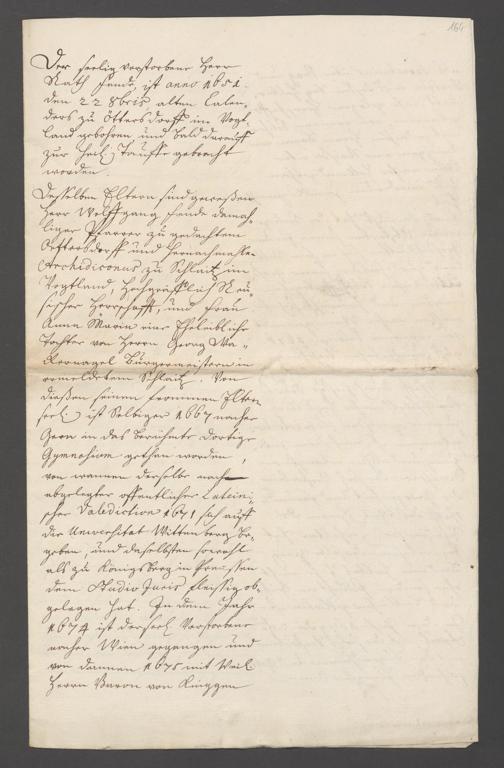 164
Der seelig verstorbene Herr
Rath Fende, ist anno 1651.
den 22 8bris alten Calen-
ders zu Öttersdorff im Vogt-
land gebohren und bald darauff
zur heil. Tauffe gebracht
worden.
Desselben Eltern sind gewesen
Herr Wolffgang Fende damah-
liger Pfarrer zu gedachtem
Oettersdorff und hernachmahls
Archidiconus zu Schlaitz im
Vogtland, Hochgräfflich Reu-
sischer Herrschafft, und Frau
Anna Maria eine Eheleibliche
Tochter von Herrn Georg Wa-
kernagel Burgermeistern in
ermeldetem Schlaitz. Von
diesen seinen frommen Eltern
seel. ist Selbiger 1667 nacher
Gera in das berühmte dortige
Gymnasium gethan worden,
von wannen derselbe nach
abgelegter offentlicher Lateini-
scher Valediction 1671 sich auff
die Universitat Wittenberg be-
geben, und daselbsten sowohl
als zu Königsberg in Preussen
dem Studio Juris fleissig ob-
gelegen hat. In dem Jahr
1674 ist der seel. Verstorbene
nacher Wien gegangen und
von dannen 1675 mit
Herrn Baron von